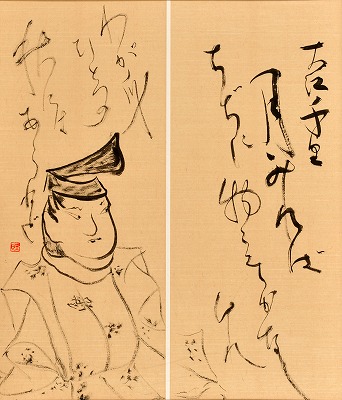 大江千里
月みれば
ちぢに
物こそかな
しけれ
わが身
ひとつの
秋には
あらねど